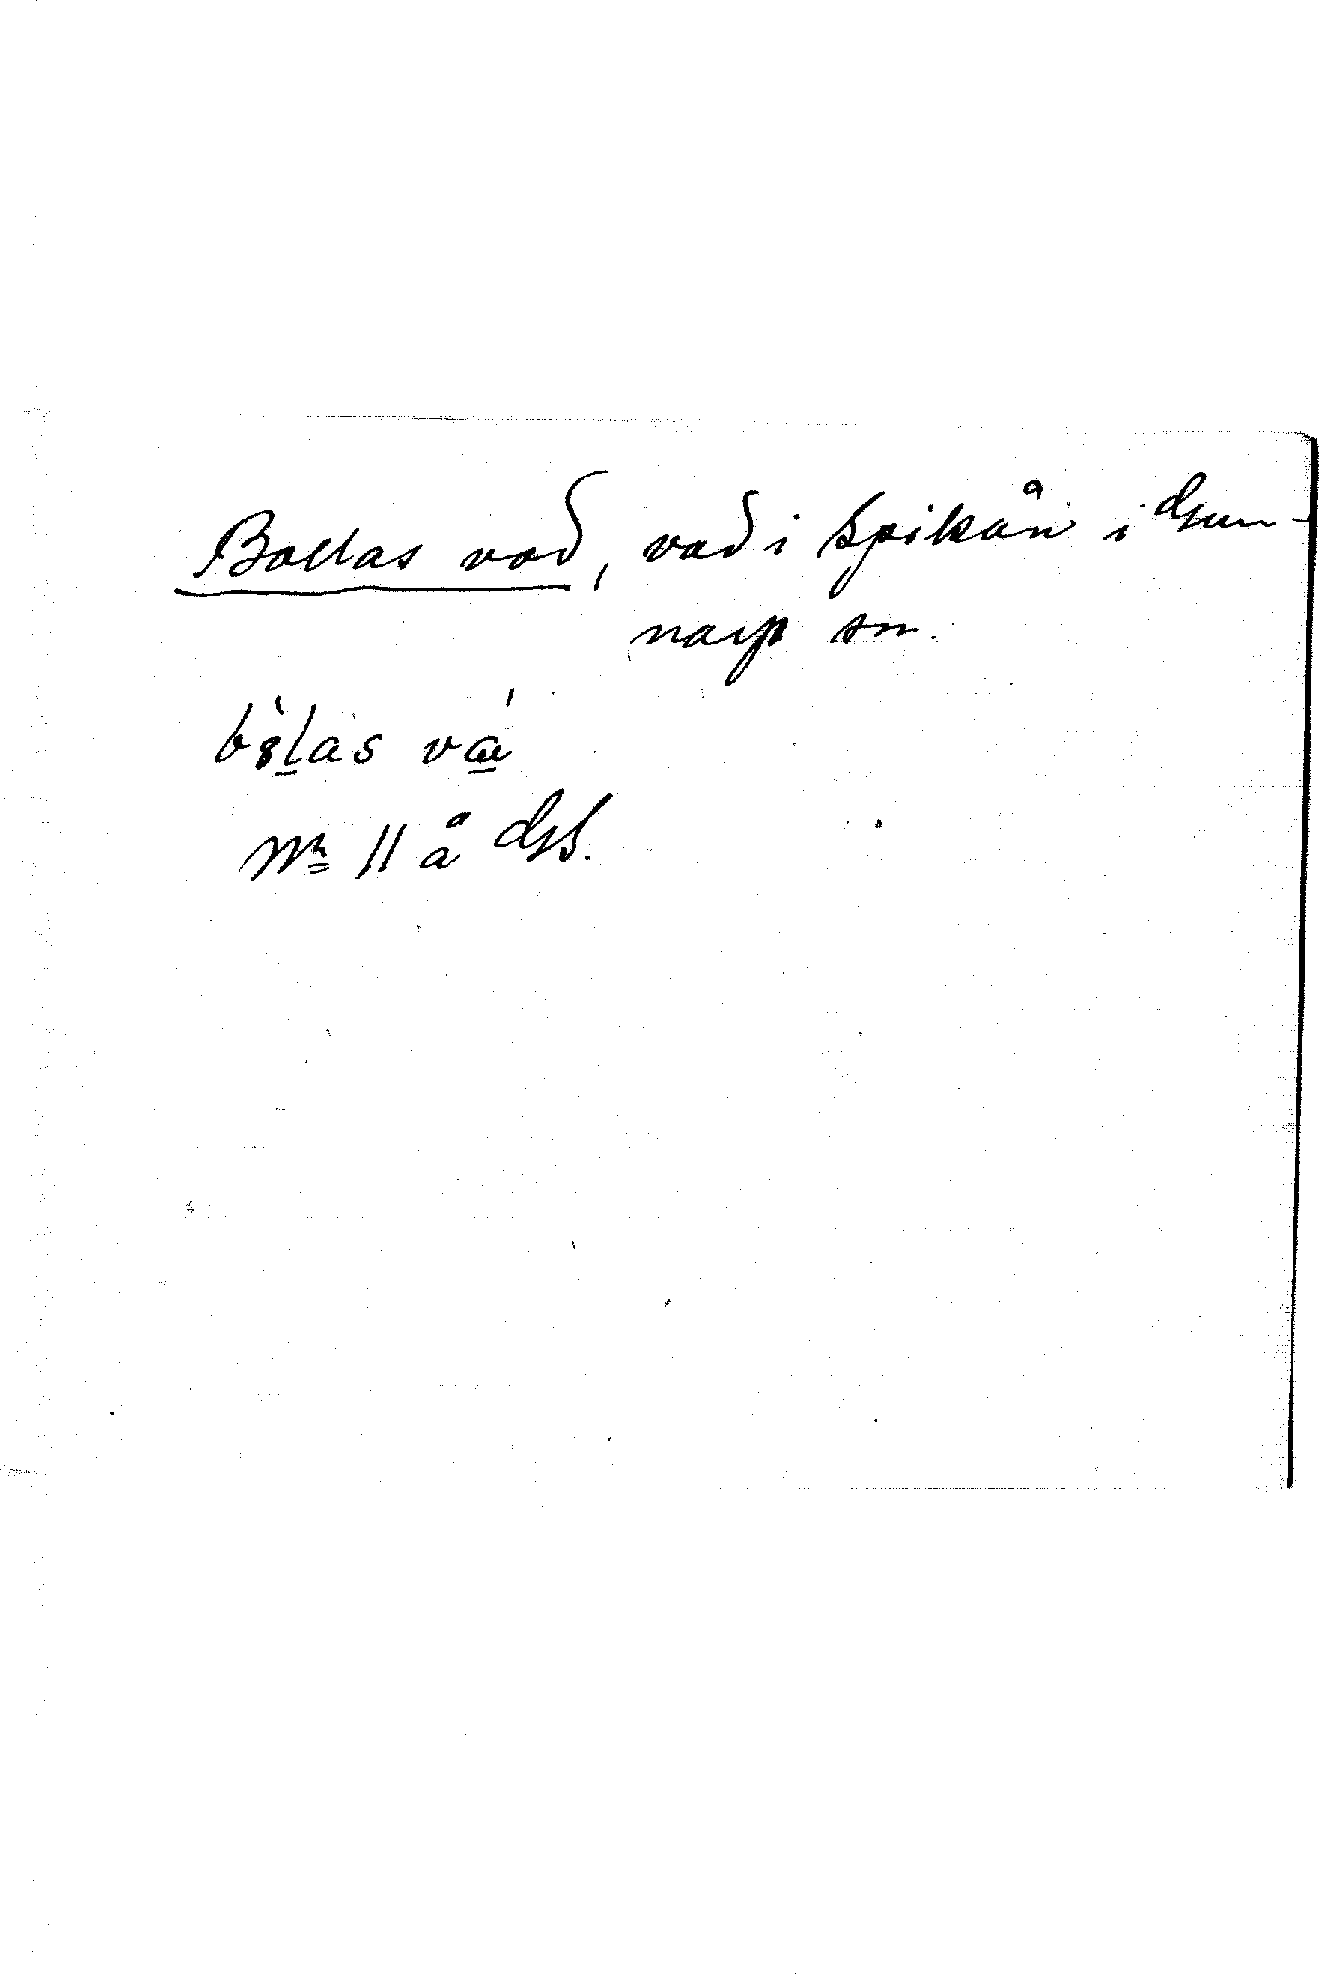 Bollas vad, vad i Spikån i Gun-
narp sn.
bòlas vá
Nr 11 å GS.